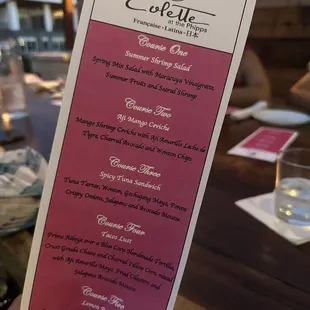 Colette
at the Phipps
Française • Latina • 日本
Course One
Summer Shrimp Salad
Spring Mix Salad with Maracuya Vinaigrette,
Summer Fruits and Seared Shrimp
Course Two
Aji Mango Ceviche
Mango Shrimp Ceviche with Aji Amarillo Leche de
Tigre, Charred Avocado and Wonton Chips
Course Three
Spicy Tuna Sandwich
Tuna Tartar, Wonton, Gochujang Mayo, Ponzu
Crispy Onions, Jalapeno and Avocado Mousse
Course Four
Tacos Lust
Prime Ribeye over a Blue Corn Handmade Tortilla,
Crust Gouda Cheese and Charred Yellow Corn mixed
with Aji Amarillo Mayo, Fried Cilantro and
Jalapeno Avocado Mousse
Course Five
Lemon